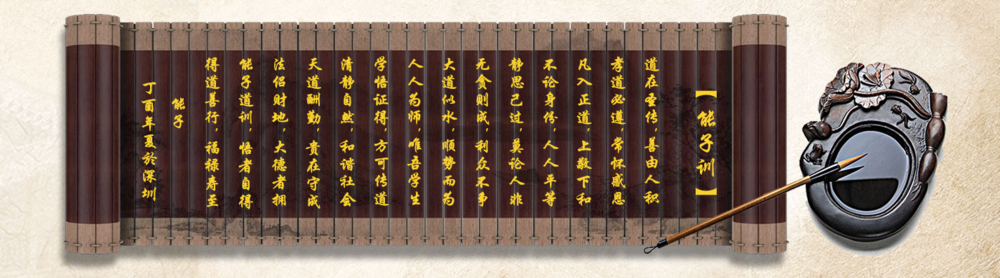 【能子训】
道在圣传，善由人积
孝道必遵，常怀感恩
凡入正道，上敬下和
不论身份，人人平等
静思己过，莫论人非
无贪则成，利众不争
大道似水，顺势而为
人人为师，唯吾学生
学悟证得，方可传道
清静自然，和谐社会
天道酬勤，贵在守成
法侣财地，大德者拥
能子道训，悟者自得
得道善行，福禄寿至
能子
丁酉年夏於深圳